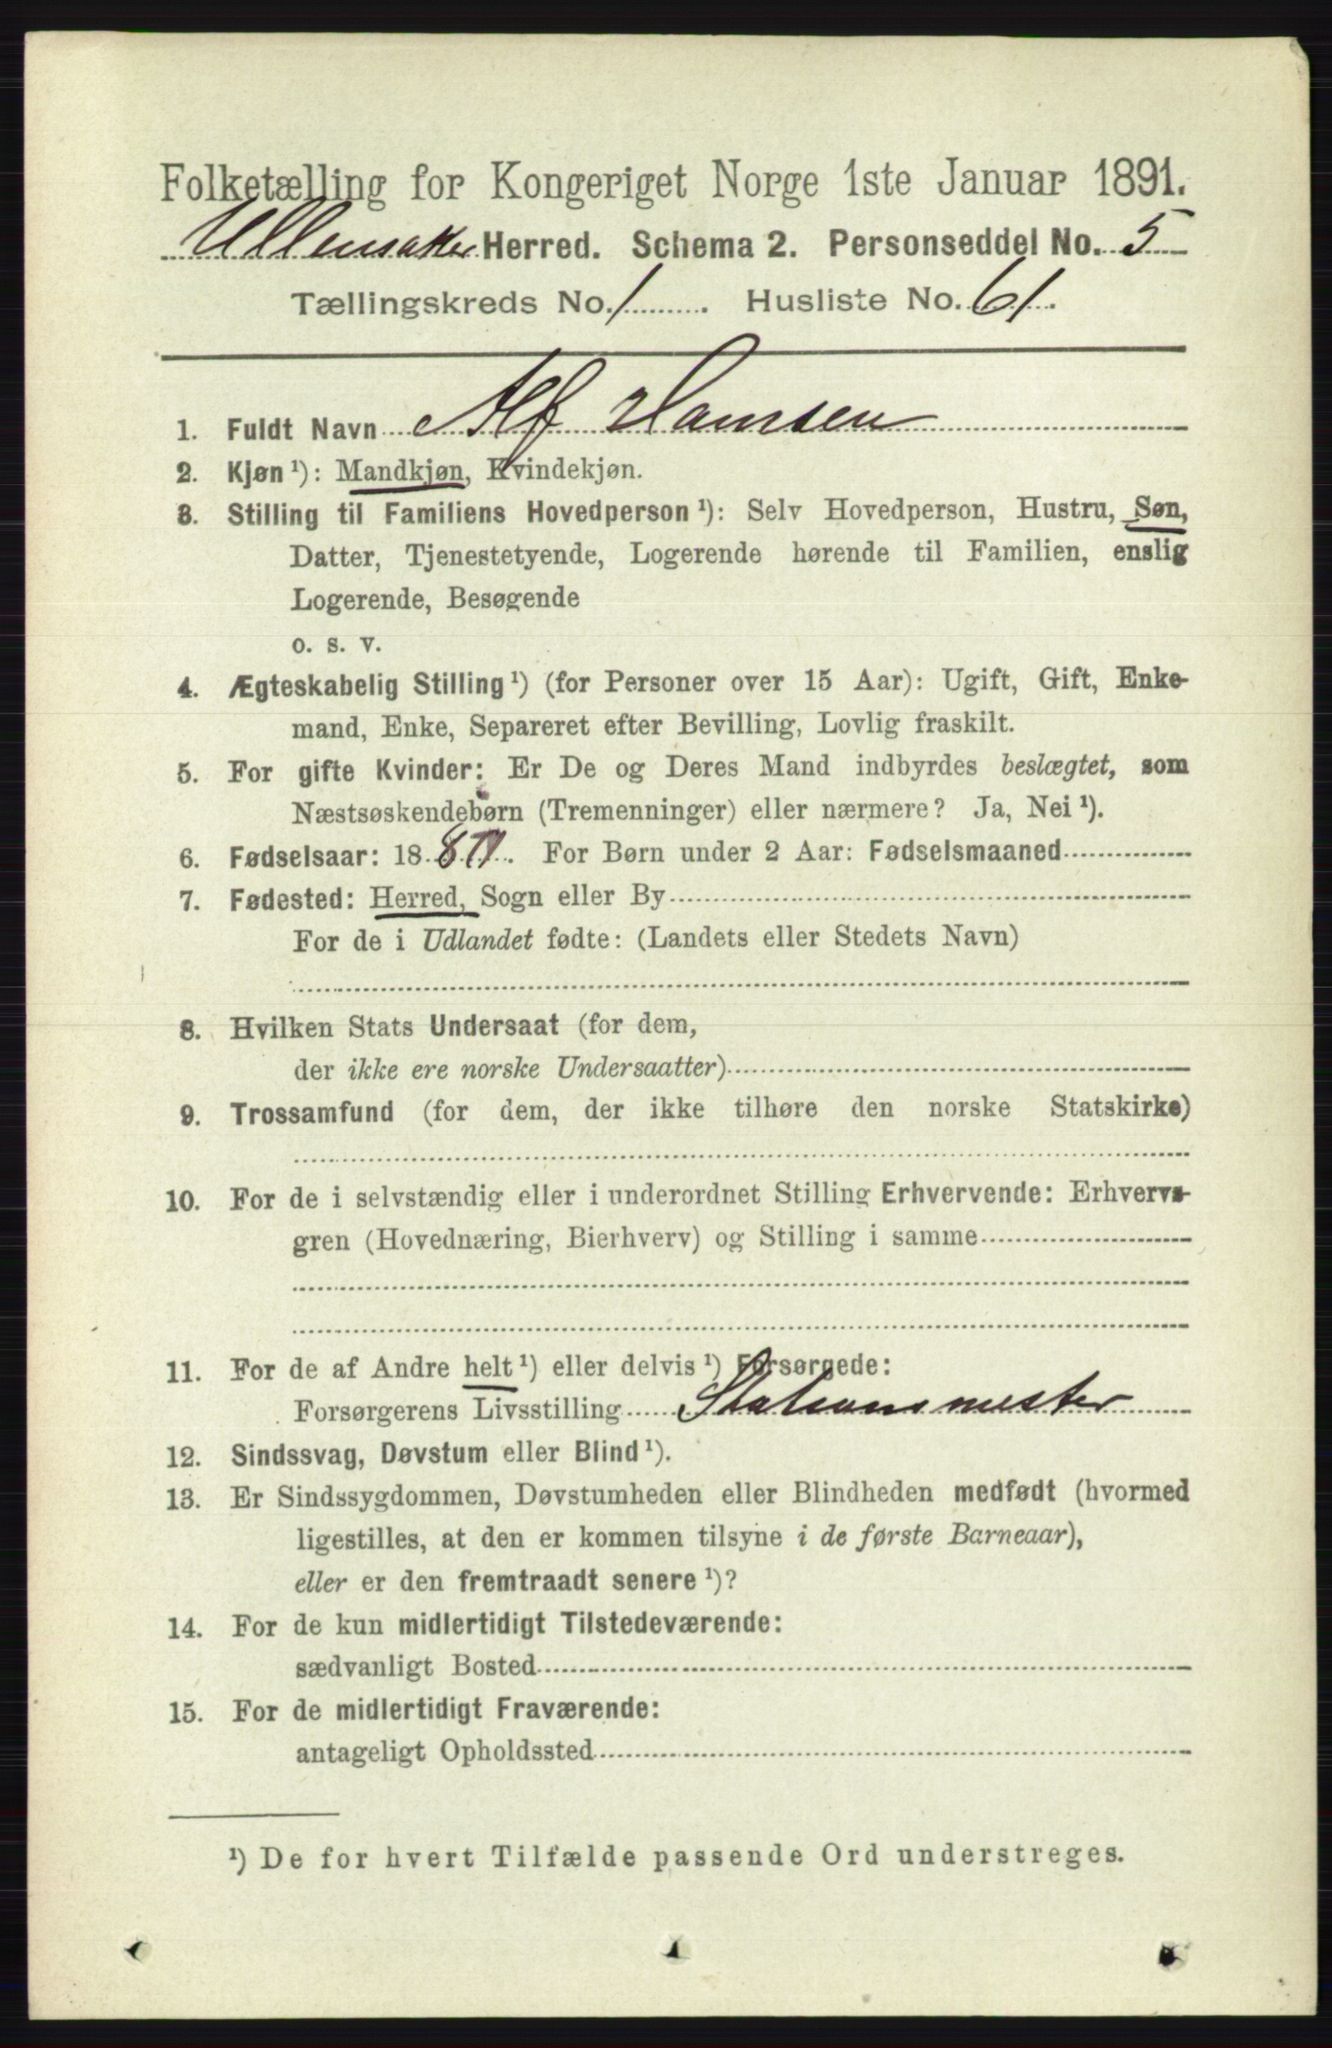 Folketælling for Kongeriget Norge 1ste Januar 1891.
Ullensaker Herred. Schema 2. Personseddel No. 5
Tællingskreds No. 1. Husliste No. 61.
1. Fuldt Navn Alf Hansen
2. Kjøn ¹): Mandkjøn, Kvindekjøn.
3. Stilling til Familiens Hovedperson ¹): Selv Hovedperson, Hustru, Søn,
Datter, Tjenestetyende, Logerende hørende til Familien, enslig
Logerende, Besøgende
o. s. v.
4. Ægteskabelig Stilling ¹) (for Personer over 15 Aar): Ugift, Gift, Enke-
mand, Enke, Separeret efter Bevilling, Lovlig fraskilt.
5. For gifte Kvinder: Er De og Deres Mand indbyrdes beslægtet, som
Næstsøskendebørn (Tremenninger) eller nærmere? Ja, Nei ¹).
6. Fødselsaar: 18 For Børn under 2 Aar: Fødselsmaaned
7. Fødested: Herred, Sogn eller By
For de i Udlandet fødte: (Landets eller Stedets Navn)
8. Hvilken Stats Undersaat (for dem,
der ikke ere norske Undersaatter)
9. Trossamfund (for dem, der ikke tilhøre den norske Statskirke)
10. For de i selvstændig eller i underordnet Stilling Erhvervende: Erhvervs-
gren (Hovednæring, Bierhverv) og Stilling i samme
11. For de af Andre helt ¹) eller delvis ¹) Forsørgede:
Forsørgerens Livsstilling Stationsmester
12. Sindssvag, Døvstum eller Blind ¹).
13. Er Sindssygdommen, Døvstumheden eller Blindheden medfødt (hvormed
ligestilles, at den er kommen tilsyne i de første Barneaar),
eller er den fremtraadt senere ¹)?
14. For de kun midlertidigt Tilstedeværende:
sædvanligt Bosted
15. For de midlertidigt Fraværende:
antageligt Opholdssted
¹) De for hvert Tilfælde passende Ord understreges.